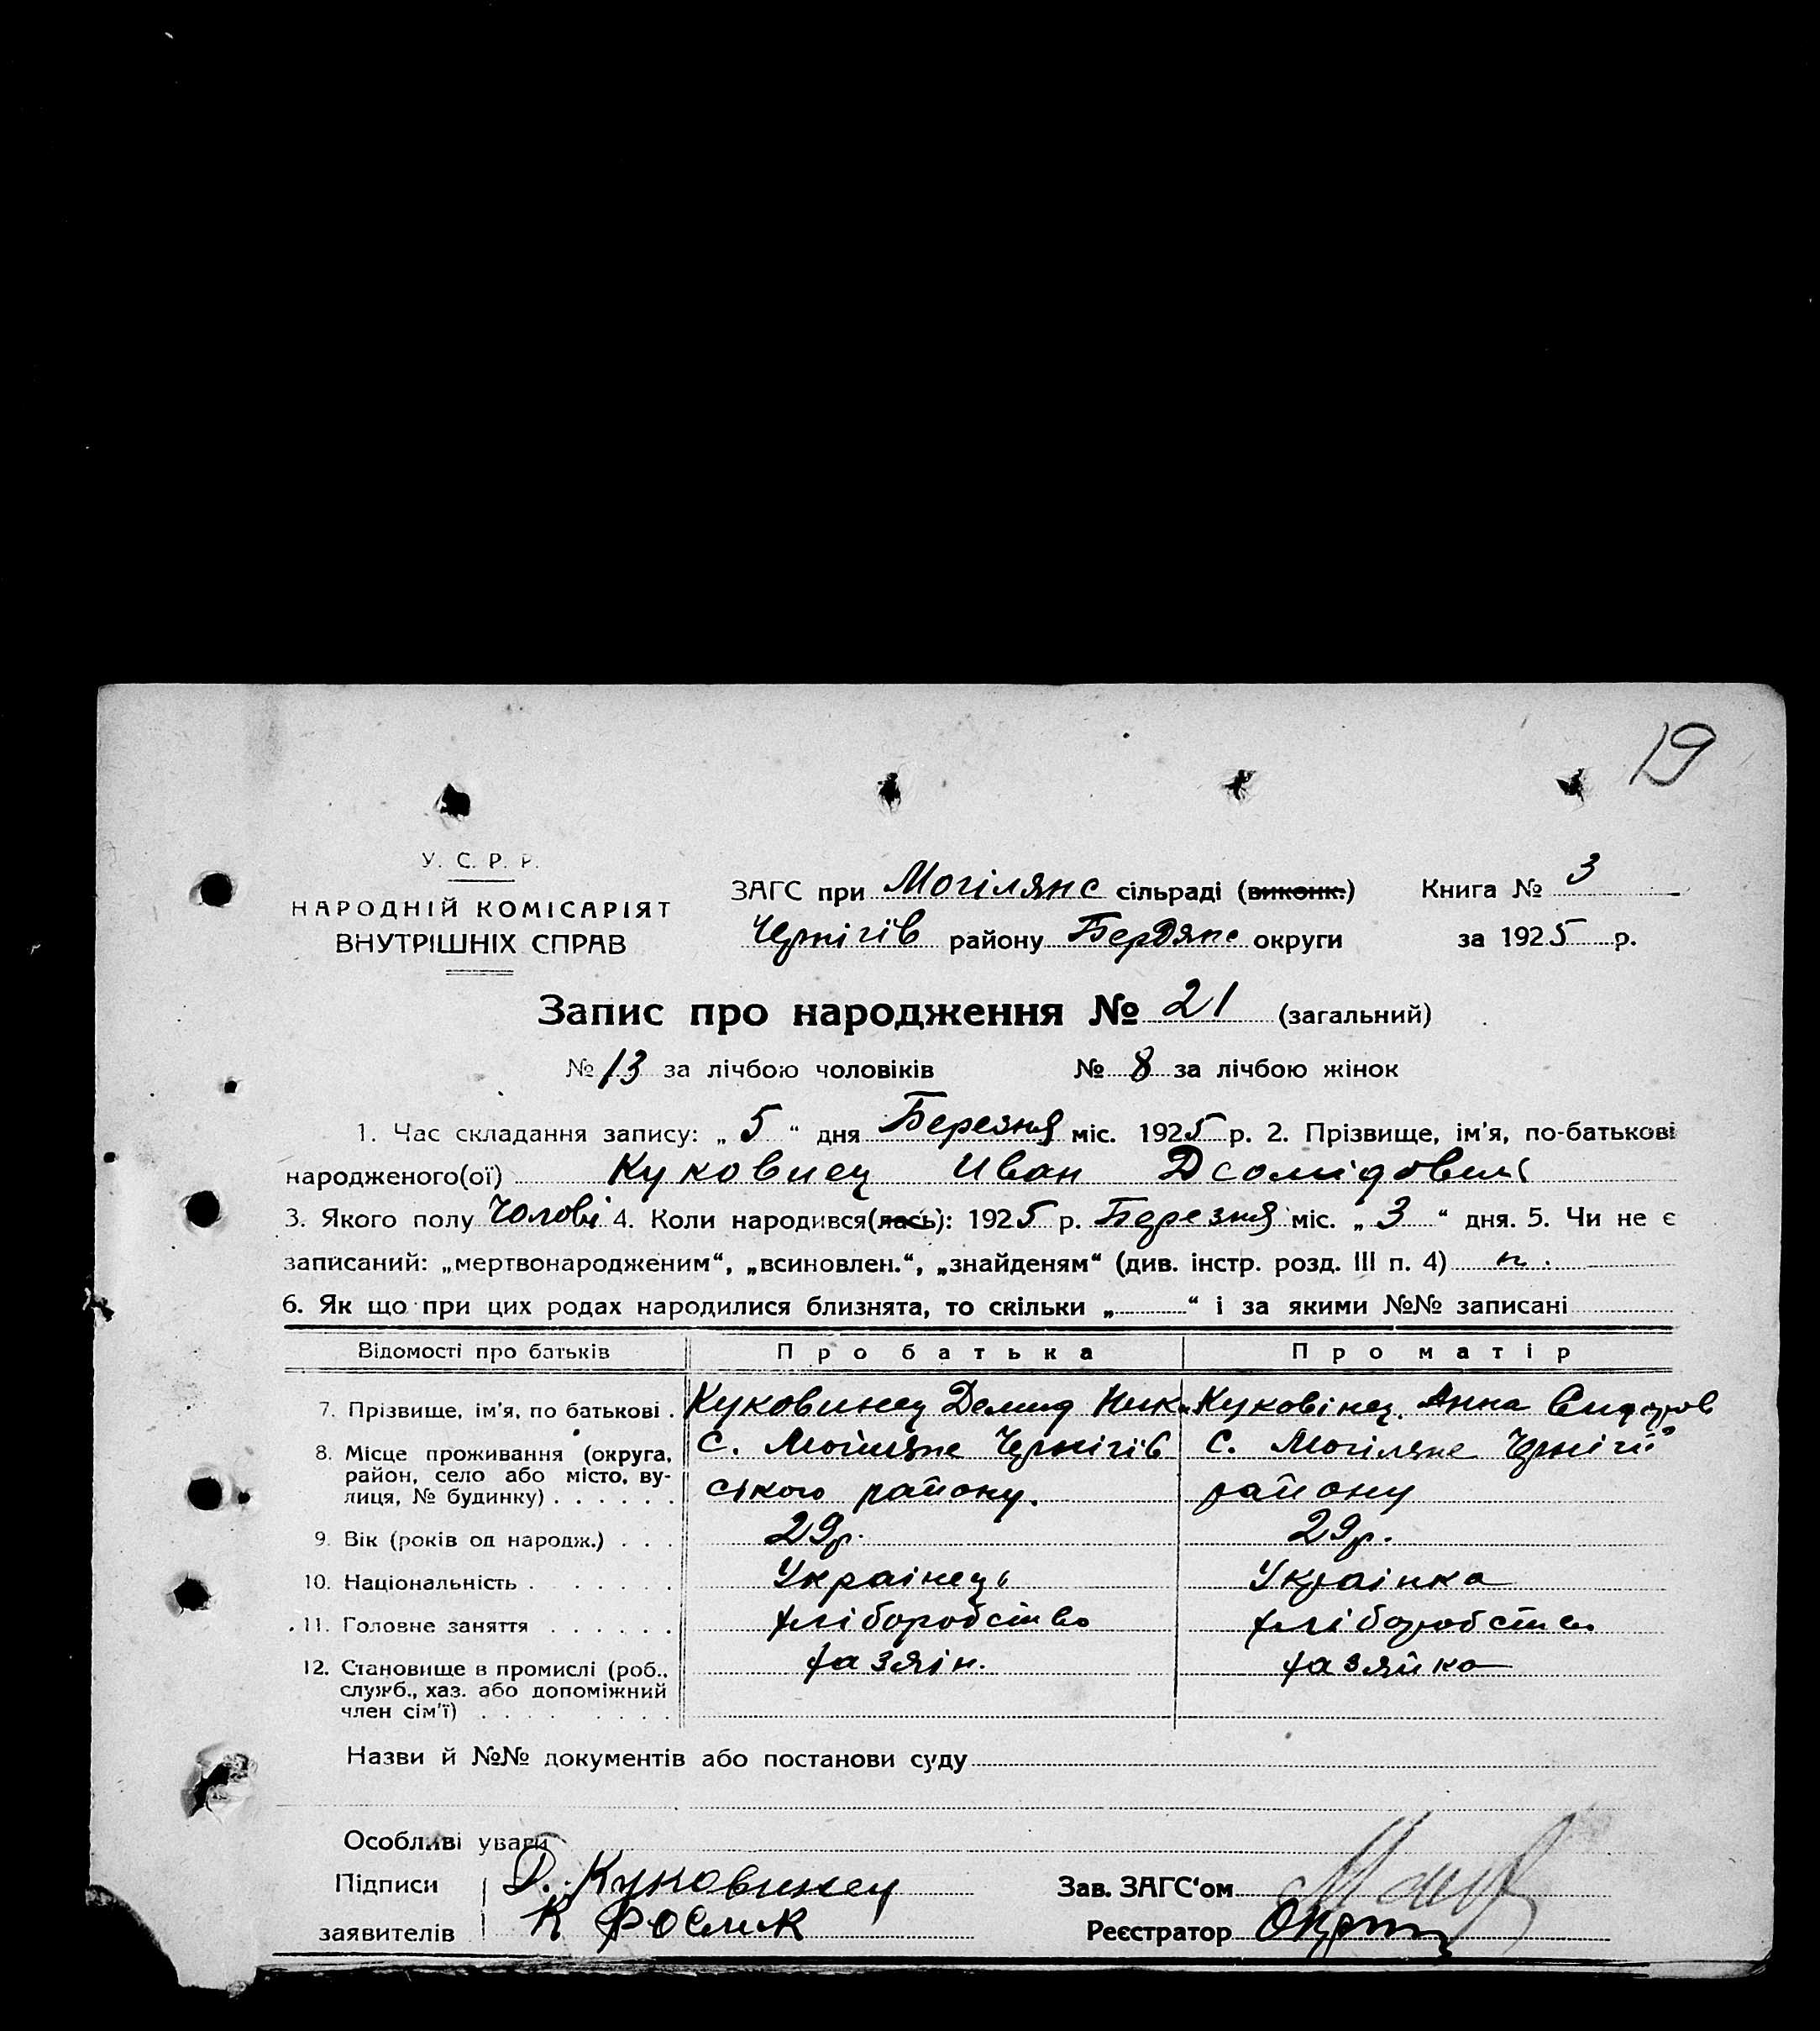 19
У. С. Р. Р.
НАРОДНІЙ КОМІСАРІЯТ
ВНУТРІШНІХ СПРАВ
ЗАГС при Могілянс сільраді (виконк.) Книга № 3
Чернігів району Бердянс округи за 1925 р.
Запис про народження № 21 (загальний)
№ 13 за лічбою чоловіків № 8 за лічбою жінок
1. Час складання запису: „ 5 “ дня Березня міс. 1925 р. 2. Прізвище, ім'я, по-батькові
народженого(ої) Куковинец Иван
3. Якого полу Чолові 4. Коли народився(лась): 1925 р. Березня міс. „ 3 “ дня. 5. Чи не є
записаний: „мертвонародженим“, „всиновлен.“, „знайденям“ (див. інстр. розд. III п. 4) н.
6. Як що при цих родах народилися близнята, то скільки „ “ і за якими №№ записані
Відомості про батьків Про батька Про матір
7. Прізвище, ім'я, по батькові . Куковинец Демид Ник. Куковінец. Анна Сидоров
8. Місце проживання (округа, с. Могиляне Чернігів с. Могіляне Чернігів
район, село або місто, ву-
лиця, № будинку) . . . . . . ського району. району
9. Вік (років од народж.) . . . 29р. 29р.
10. Національність . . . . . . Украінець Украінка
11. Головне заняття . . . . . . хліборобство хліборобство
12. Становище в промислі (роб., хазяін. хазяйка
служб., хаз. або допоміжний
член сім'ї) . . . . . . . .
Назви й №№ документів або постанови суду
Особливі уваги
Підписи Д. Куковинец Зав. ЗАГС'ом
заявителів К Реєстратор